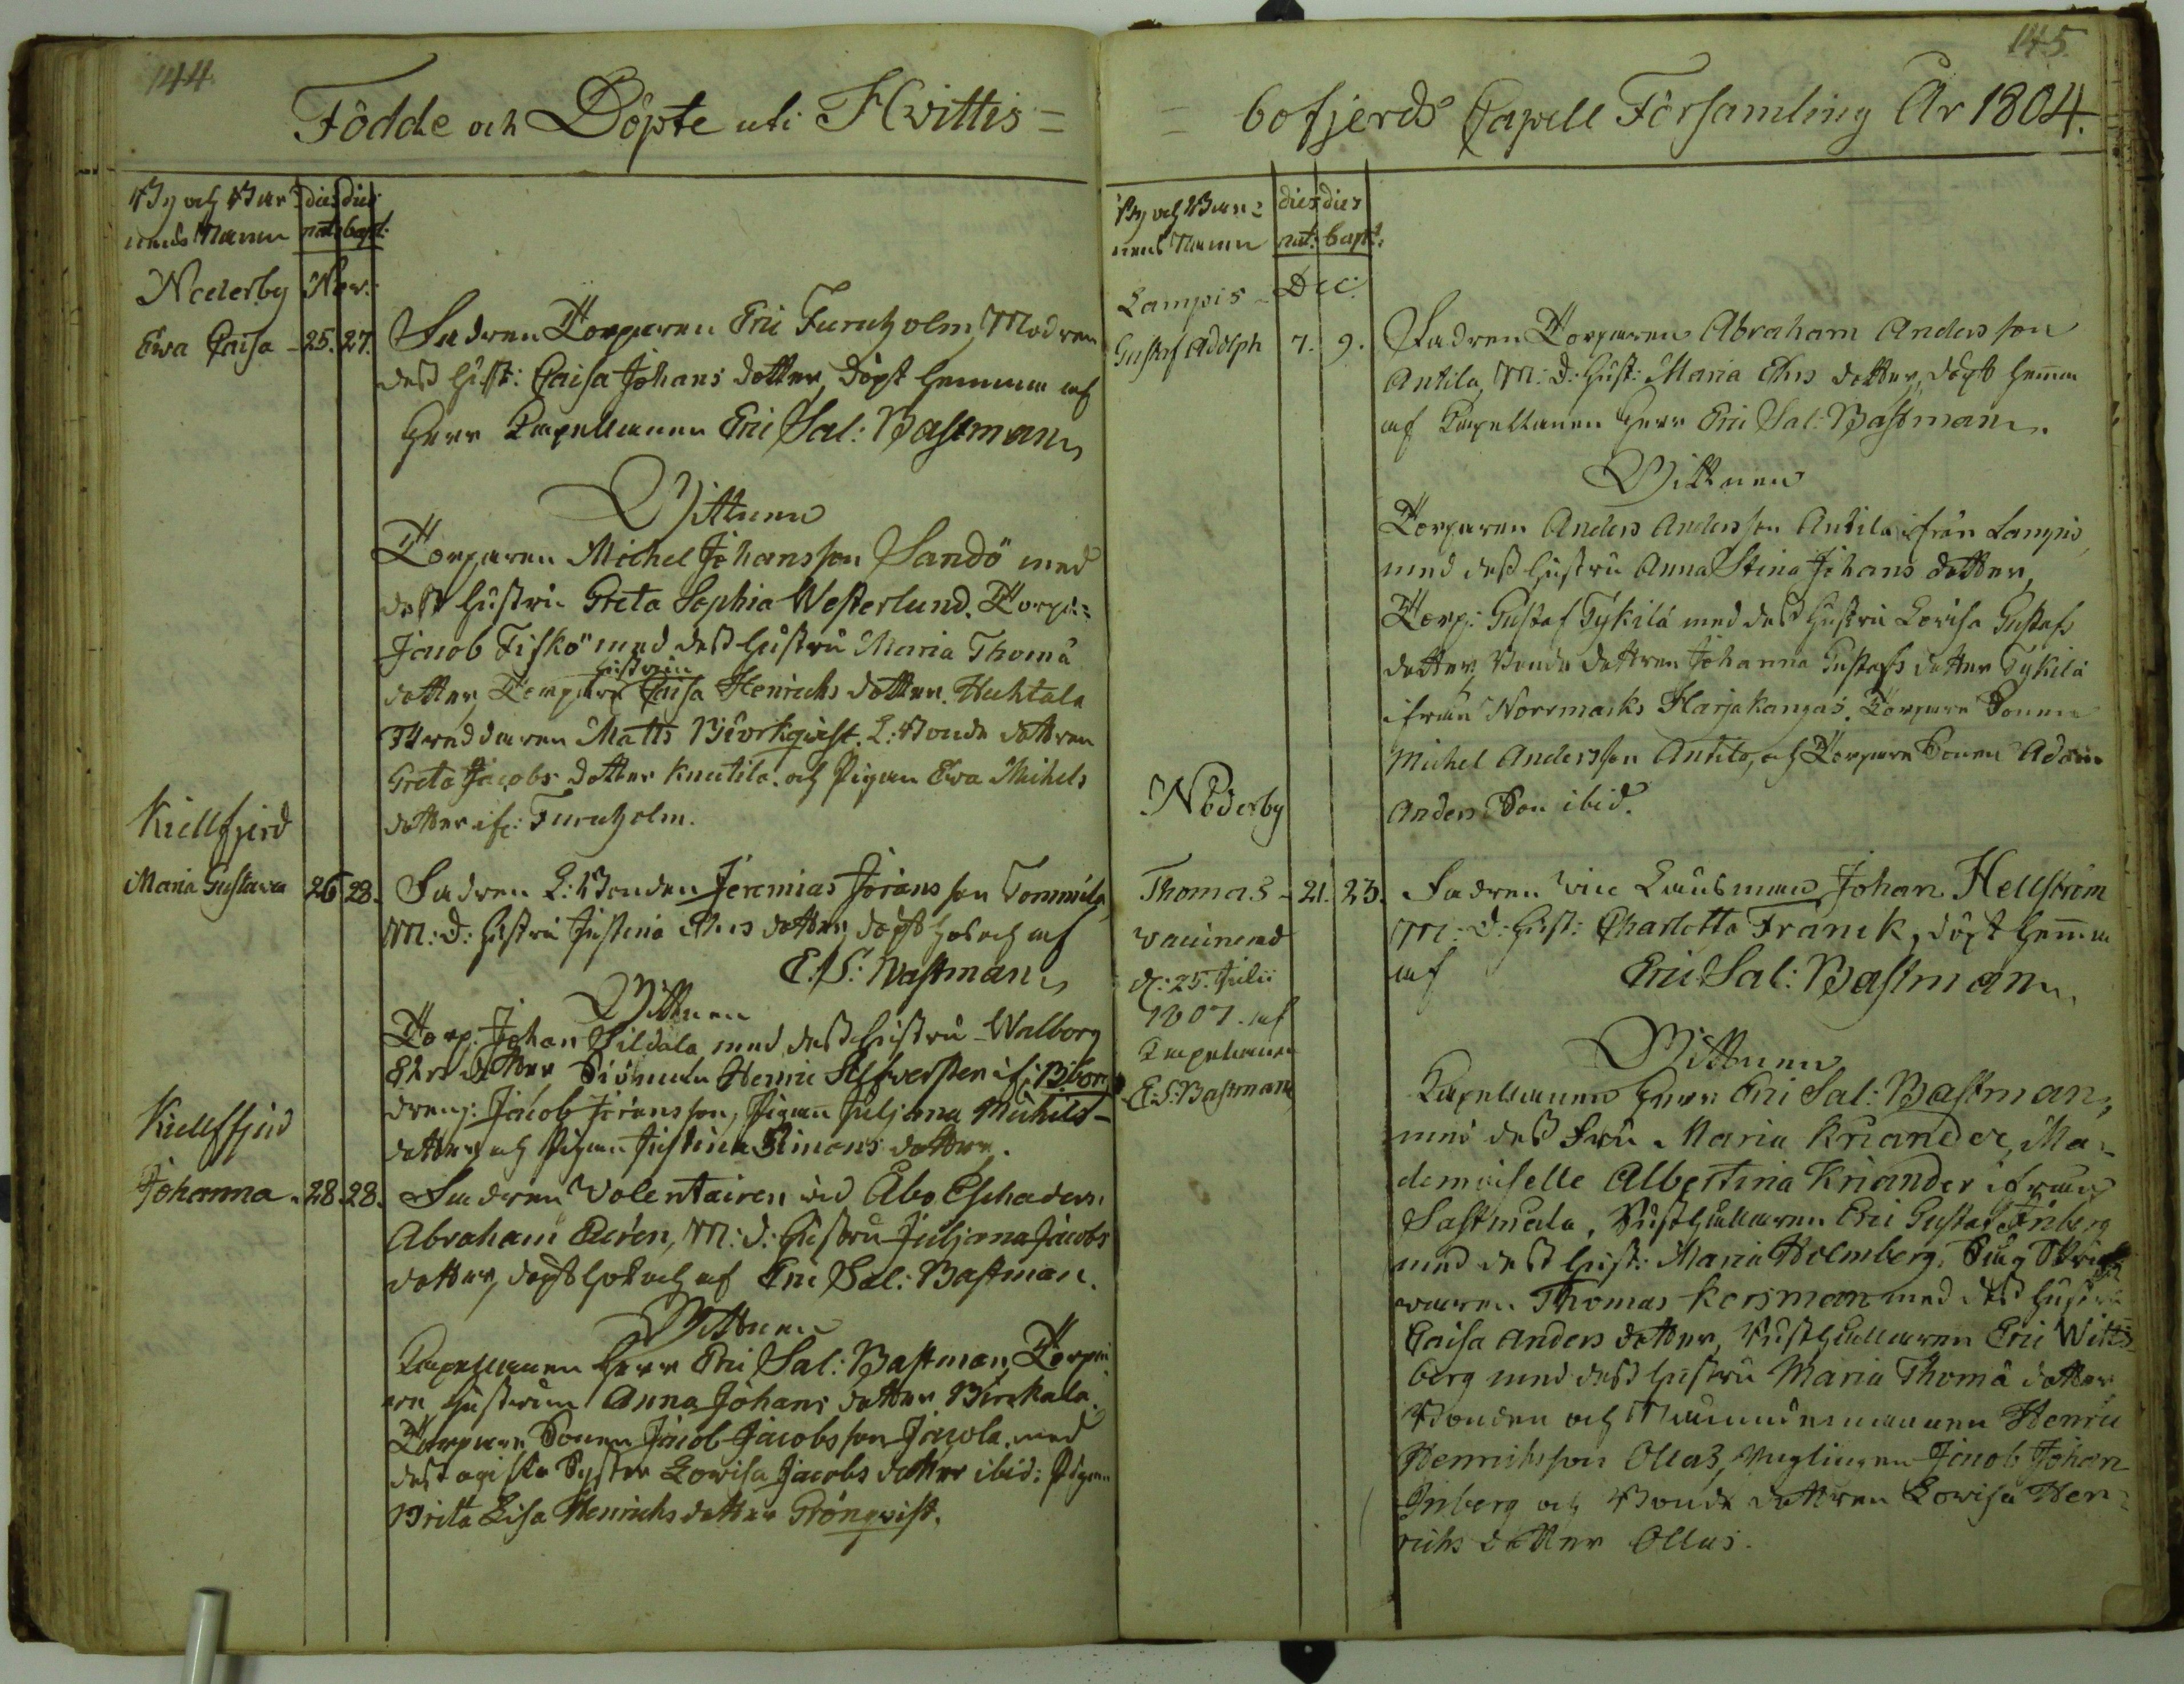 144
Födde och Döpte uti Hvittis=
By och Bar=
nens Namn
dies nat:
dies bapt:
Nederby
Nov.
Ewa Caisa - 25. 27.
Fadren Torparen Eric Furuholm, Modren
dess Hust: Caisa Johans dotter, döpt hemma af
Herr Capellanen Eric Sal: Bastman
Vittnen
Torparen Michel Johansson Sandö med
dess Hustru Greta Sophia Westerlund. Torp:
Jacob Fiskö med dess Hustru Maria Thomæ
dotter, Torpare hustrun Caisa Henrichs dotter Huhtala
Skreddaren Matts Biörkqvist. L: Bonde dottren
Greta Jacobs dotter Knutila. och Pigan Ewa Michels
dotter if: Furuholm.
Kiellfjerd
Maria Gustava 26 28.
Fadren L: Bonden Jeremias Jöransson Tommila,
M: D: Hustru Justina Ehrs dotter, döpt hos och af
E. S: Bastman
Vittnen
Torp. Johan Sildala med dess Hustru Walborg
Ehrs dotter Siöman Henric Silfversten if: B:borg
dreng: Jacob Jöransson, Pigan Juljana Michels-
dotter, och Pigan Justina Simons dotter.
Kiellffjerd
Johanna - 28. 28.
Fadren Volentairen vid Åbo Eschadern
Abraham Ceirén, M: d: Hustru Juljana Jacobs
dotter, döpt hos och af Eric Sal: Bastman.
Vittnen
Capellanen Herr Eric Sal: Bastman, Torpa
re hustrun Anna Johans dotter Birckala.
Torpare Sonen Jacob Jacobsson Jacola, med
dess ogifta Syster Lovisa Jacobs dotter ibid: Pigan
Brita Lisa Henrichs dotter Grönqvist.
145.
= bofjerds Capell Församling År 1804.
By och Bar=
nens Namn
dies nat:
dies bapt:
Lampis -
Dec:
Gustaf Adolph 7. 9.
Fadren Torparen Abraham Andersson
Antila, M: D: Hust: Maria Ehrs dotter, döpt hemma
af Capellanen Herr Eric Sal: Bastman.
Vittnen
Torparen Anders Andersson Antila ifrån Lampis,
med dess Hustru Anna Stina Johans dotter,
Torp: Gustaf Tykilä med dess Hustru Lovisa Gustafs
dotter, Bonde dottren Johanna Gustafs dotter Tykilä
ifrån Norrmarks Harjakangas. Torpare Sonen
Michel Andersson Antila, och Torpare Sonen Adam
Andersson ibid.
Nederby
Thomas - 21. 23.
vaccinerad
d: 25. Julii
1807. af
Capellanen
E: S: Bastman
Fadren vice Länsman Johan Hellström
M: D: Hust: Charlotta Franck, döpt hemma
af Eric Sal: Bastman
Vittnen
Capellanen Herr Eric Sal: Bastman,
med dess Fru Maria Kriander, Ma=
demoiselle Albertina Kriander ifrån
Sastmola, Rusthållaren Eric Gustaf Inberg
med dess Hust: Maria Holmberg,
Thomas Korsman med dess Hustru
Caisa Anders dotter, Rusthållaren Eric Witt=
berg med dess Hustru Maria Thomæ dotter
Bonden och Nämndemannen Henric
Henrichsson Ollas, Ynglingen Jacob Johan
Inberg och Bonde dottren Lovisa Hen=
richs dotter Ollas.